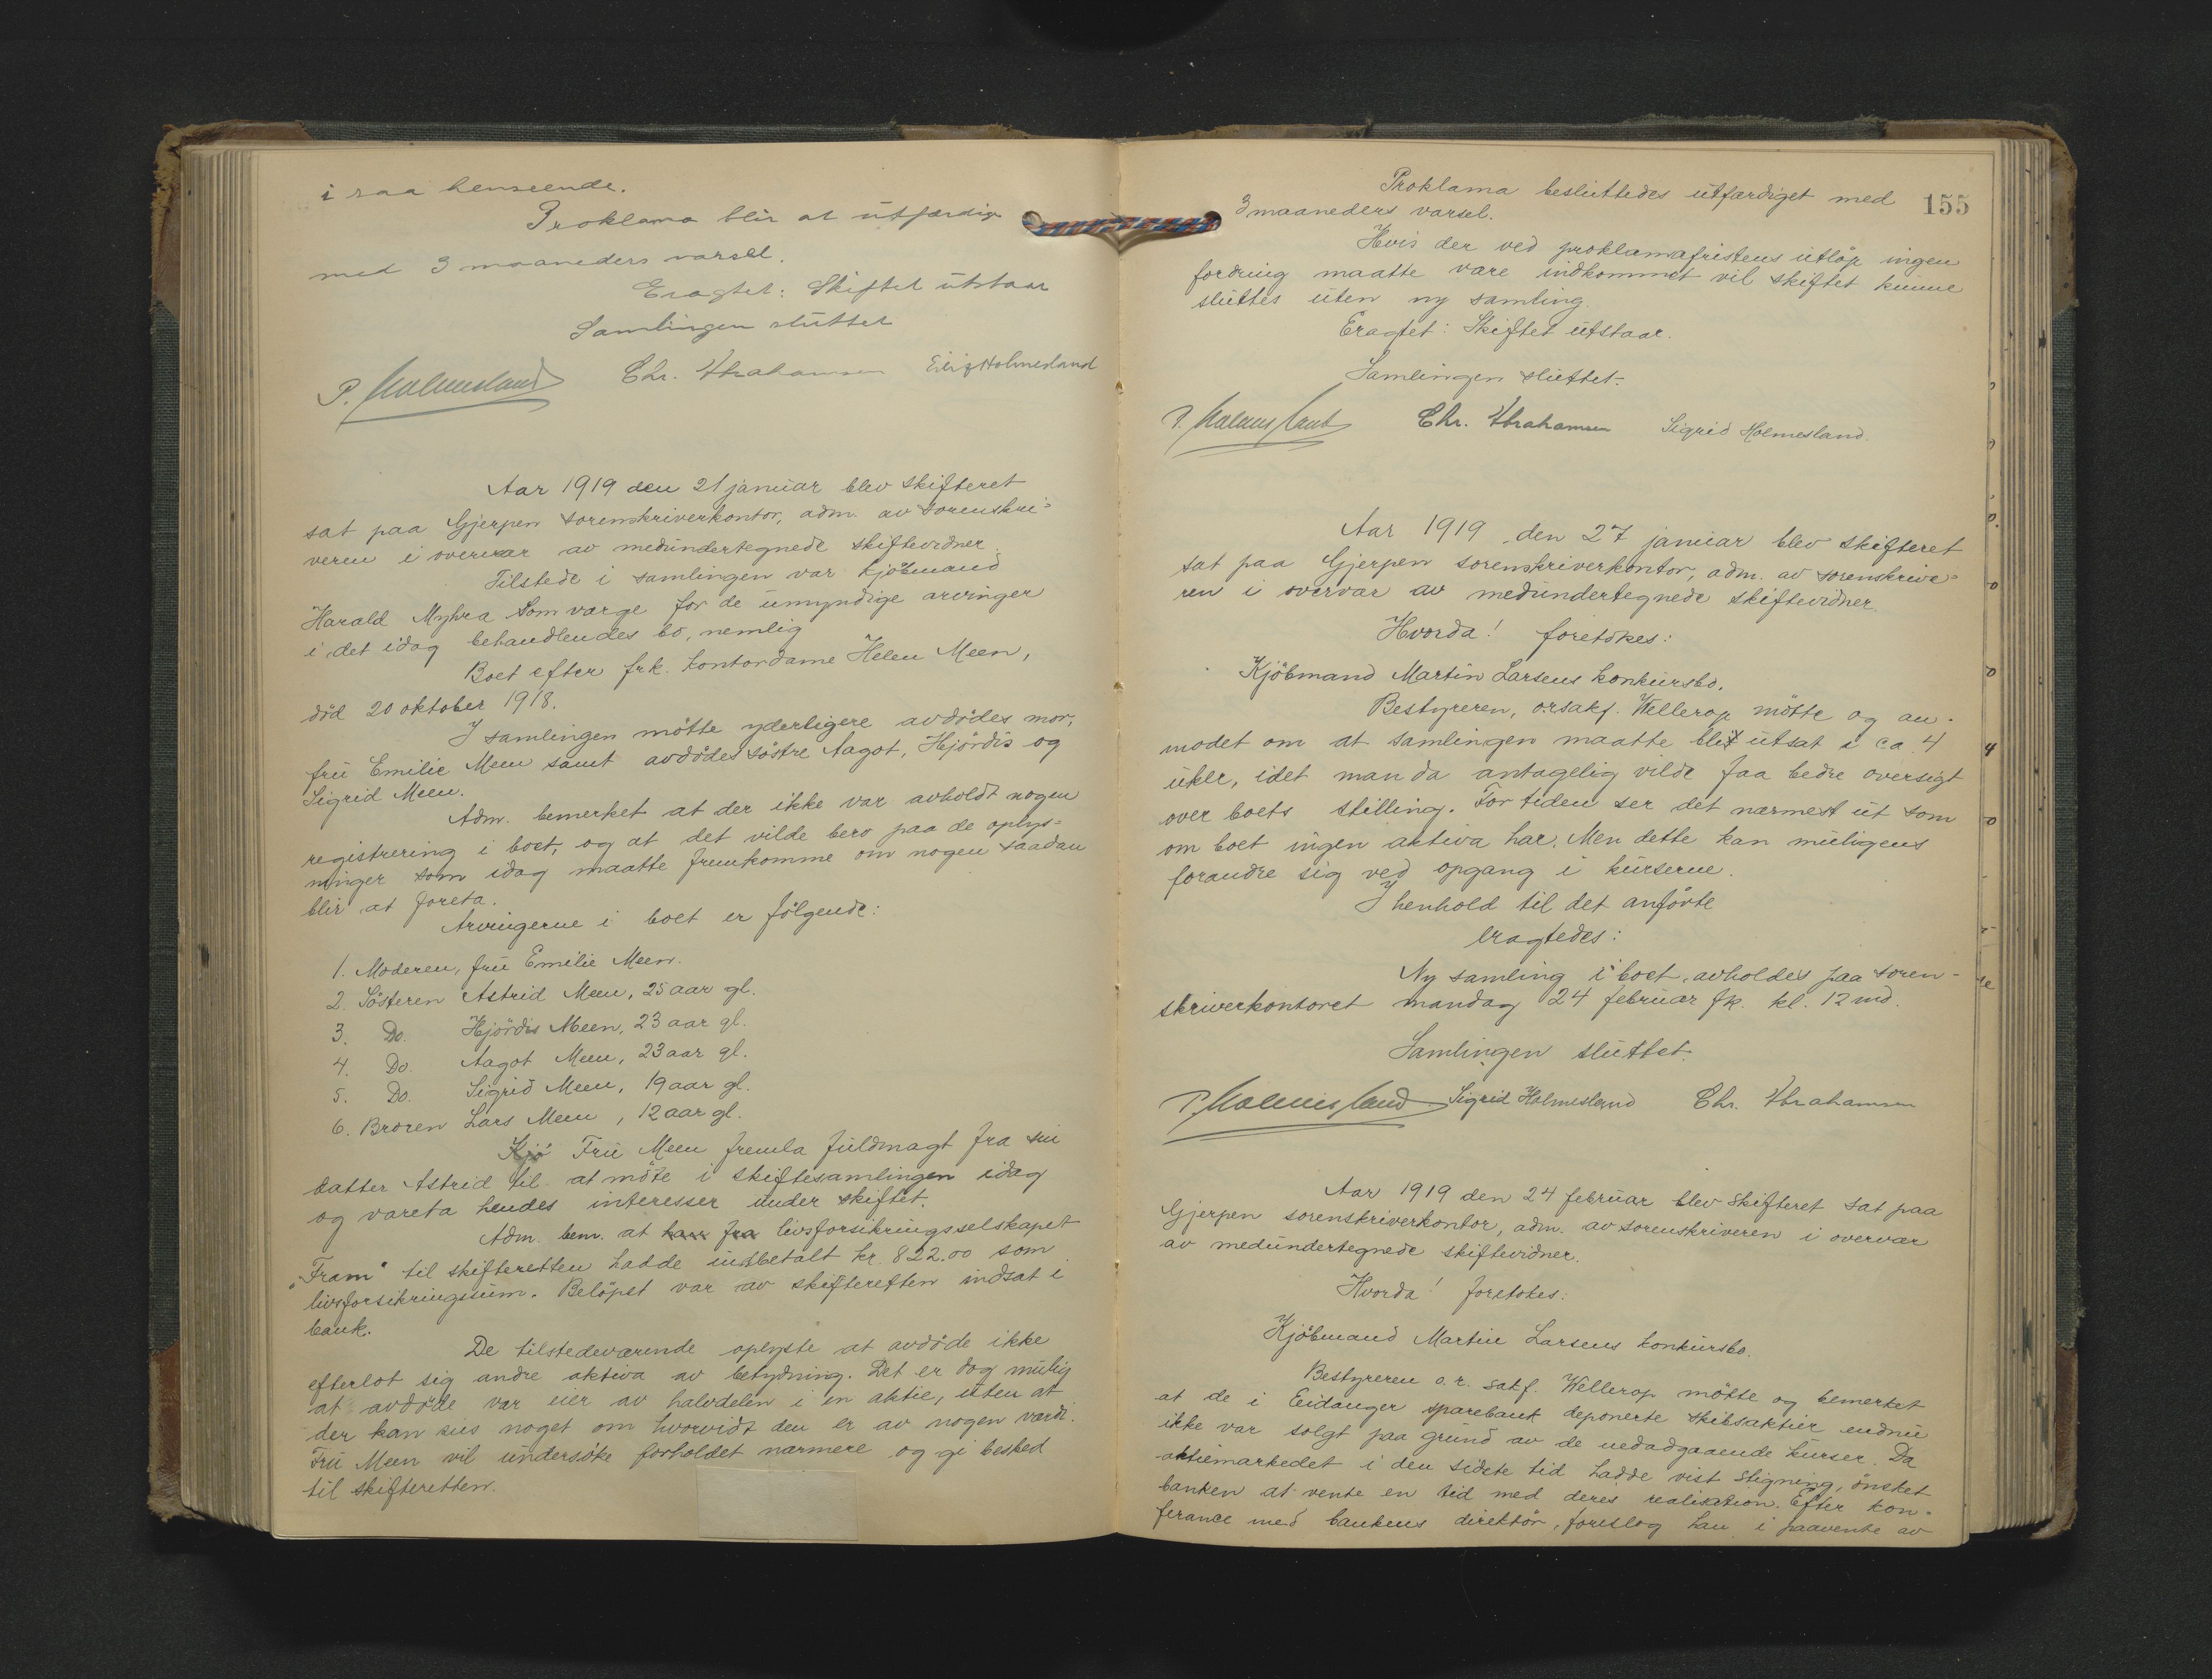 i saa henseende.
Proklama blir at utfærdige
med 3 maaneders varsel.
Eragtet: Skiftet utstaar
Samlingen sluttet
P. Holmesland Chr. Abrahamsen Holmesland
Aar 1919 den 21 januar blev skifteret
sat paa Gjerpen sorenskriverkontor, adm. av sorenskri=
veren i overvær av medundertegnede skiftevidner.
Tilstede i samlingen var kjöbmand
Harald Myhra som værge for de umyndige arvinger
i det idag behandlendes bo, nemlig
Boet efter frk. kontordame Helen Meen,
död 20 oktober 1918.
I samlingen mötte yderligere avdödes mor,
fru Emilie Meen samt avdödes söstre Aagot, Hjördis og
Sigrid Meen.
Adm. bemerket at der ikke var avholdt nogen
registrering i boet, og at det vilde bero paa de oplys=
ninger som idag maatte fremkomme om nogen saadan
blir at foreta.
Arvingerne i boet er fölgende:
1. Moderen, fru Emilie Meen.
2. Sösteren Astrid Meen, 25 aar gl.
3. Do. Hjördis Meen, 23 aar gl.
4. Do. Aagot Meen, 23 aar gl.
5. Do. Sigrid Meen, 19 aar gl.
6. Broren Lars Meen, 12 aar gl.
Kjö Fru Meen fremla fuldmagt fra sin
datter Astrid til at möte i skiftesamlingen idag
og vareta hendes interesser under skiftet.
Adm. bem. at fra livsforsikringsselskapet
"Fram" til skifteretten hadde indbetalt kr. 822.00 som
livsforsikringssum. Belöpet var av skifteretten indsat i
bank.
De tilstedeværende oplyste at avdöde ikke
efterlot sig andre aktiva av betydning. Det er dog mulig
at avdöde var eier av halvdelen i en aktie, uten at
der kan sies noget om hvorvidt den er av nogen værdi.
Fru Meen vil undersöke forholdet nærmere og gi besked
til skifteretten.
155
Proklama besluttedes utfærdiget med
3 maaneders varsel.
Hvis der ved proklamafristens utlöp ingen
fordring maatte være indkommet vil skiftet kunne
sluttes uten ny samling.
Eragtet: Skiftet utstaar.
Samlingen sluttet.
P. Holmesland Chr. Abrahamsen Sigrid Holmesland.
Aar 1919 den 27 januar blev skifteret
sat paa Gjerpen sorenskriverkontor, adm. av sorenskrive=
ren i overvær av medundertegnede skiftevidner.
Hvorda! foretokes:
Kjöbmand Martin Larsens konkursbo.
Bestyreren, o.r.sakf. Wellerop mötte og an-
modet om at samlingen maatte blit utsat i ca 4
uker, idet man da antagelig vilde faa bedre oversigt
over boets stilling. For tiden ser det nærmest ut som
om boet ingen aktiva har. Men dette kan muligens
forandre sig ved opgang i kurserne.
I henhold til det anförte
eragtedes:
Ny samling i boet avholdes paa soren-
skriverkontoret mandag 24 februar fk. kl. 12 md.
Samlingen sluttet.
P. Holmesland Sigrid Holmesland Chr. Abrahamsen
Aar 1919 den 24 februar blev skifteret sat paa
Gjerpen sorenskriverkontor, adm. av sorenskriveren i overvær
av medundertegnede skiftevidner.
Hvorda! foretokes:
Kjöbmand Martin Larsens konkursbo.
Bestyreren o.r. sakf. Wellerop mötte og bemerket
at de i Eidanger sparebank deponerte skibsaktier endnu
ikke var solgt paa grund av de nedadgaaende kurser. Da
aktiemarkedet i den sidste tid hadde vist stigning, önsket
banken at vente en tid med deres realisation. Efter kon-
ferance med bankens direktör, foreslog han i paavente av